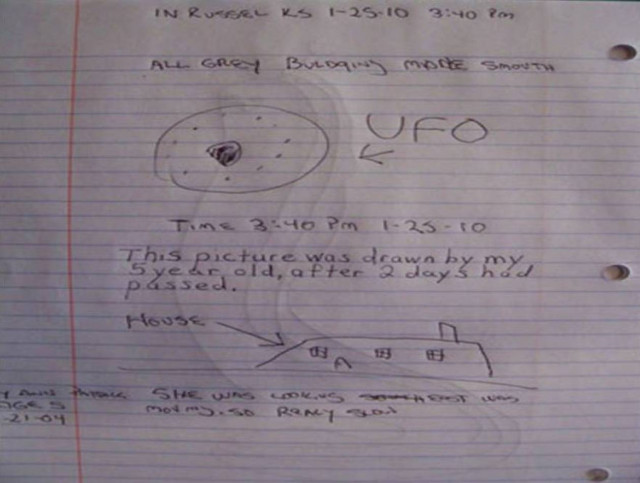 IN RUSSEL KS 1-25-10 3:40 Pm
ALL GREY BULDGING MORE SMOUTH
UFO
TIME 3:40 PM 1-25-10
This picture was drawn by my
5 year old, after 2 days had
passed.
HOUSE
SHE WAS LOOKING EAST WAS
AGE 5 MOVING SO REALY SLOW
-21-04